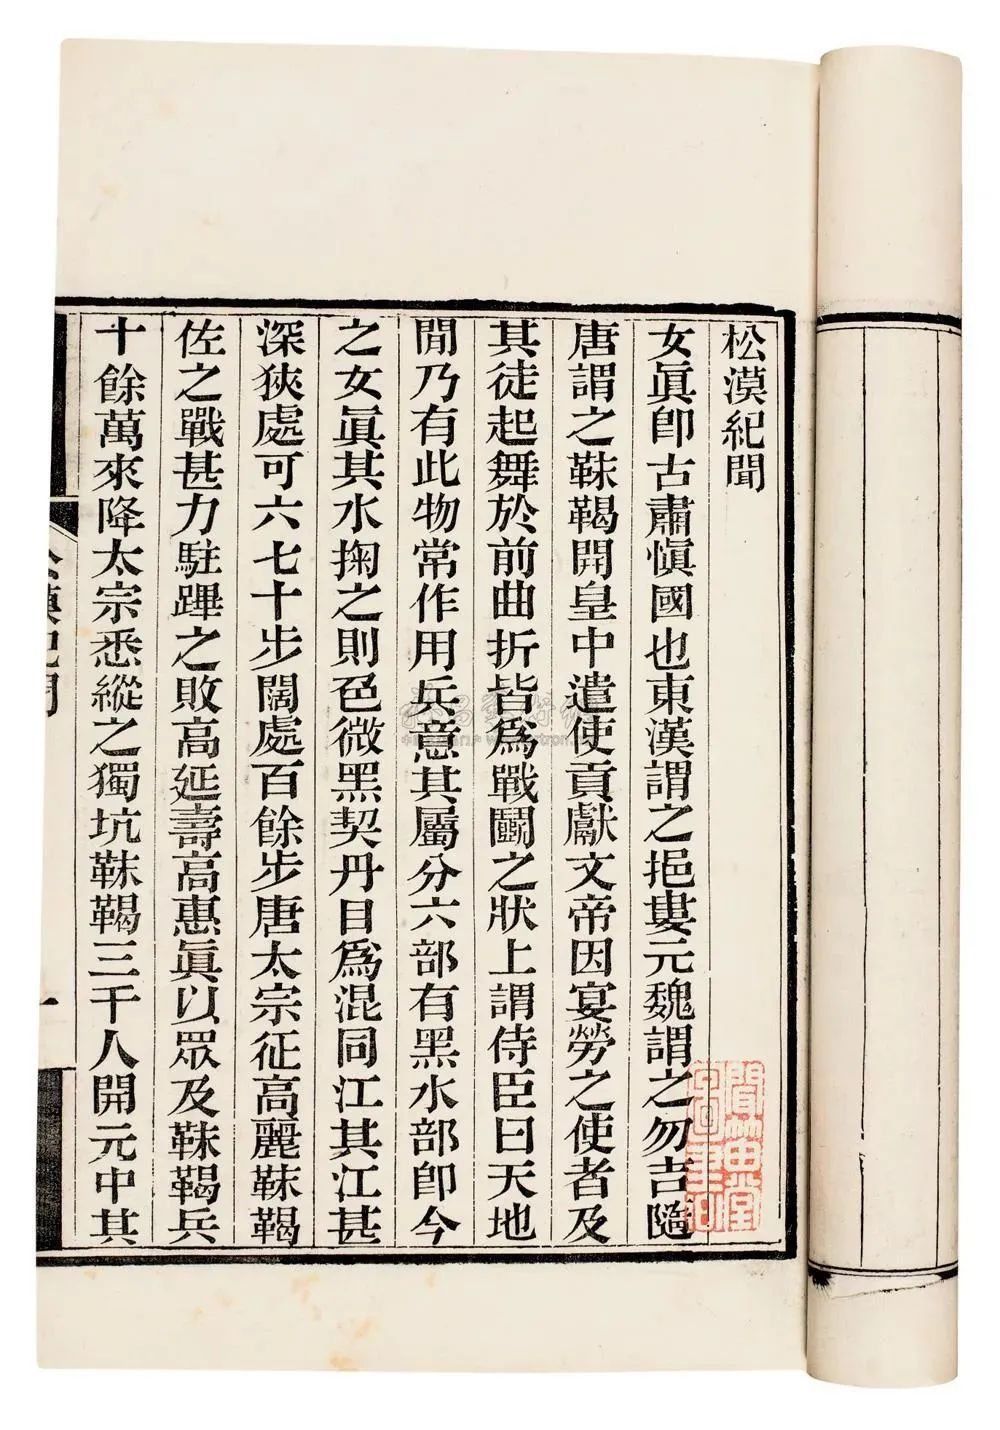 松漠紀聞
女眞卽古肅愼國也東漢謂之挹婁元魏謂之勿吉隨
唐謂之靺鞨開皇中遣使貢獻文帝因宴勞之使者及
其徒起舞於前曲折皆爲戰鬭之狀上謂侍臣曰天地
閒乃有此物常作用兵意其屬分六部有黑水部卽今
之女眞其水掬之則色微黑契丹目爲混同江其江甚
深狹處可六七十步闊處百餘步唐太宗征高麗靺鞨
佐之戰甚力駐蹕之敗高延壽高惠眞以眾及靺鞨兵
十餘萬來降太宗悉縱之獨坑靺鞨三千人開元中其